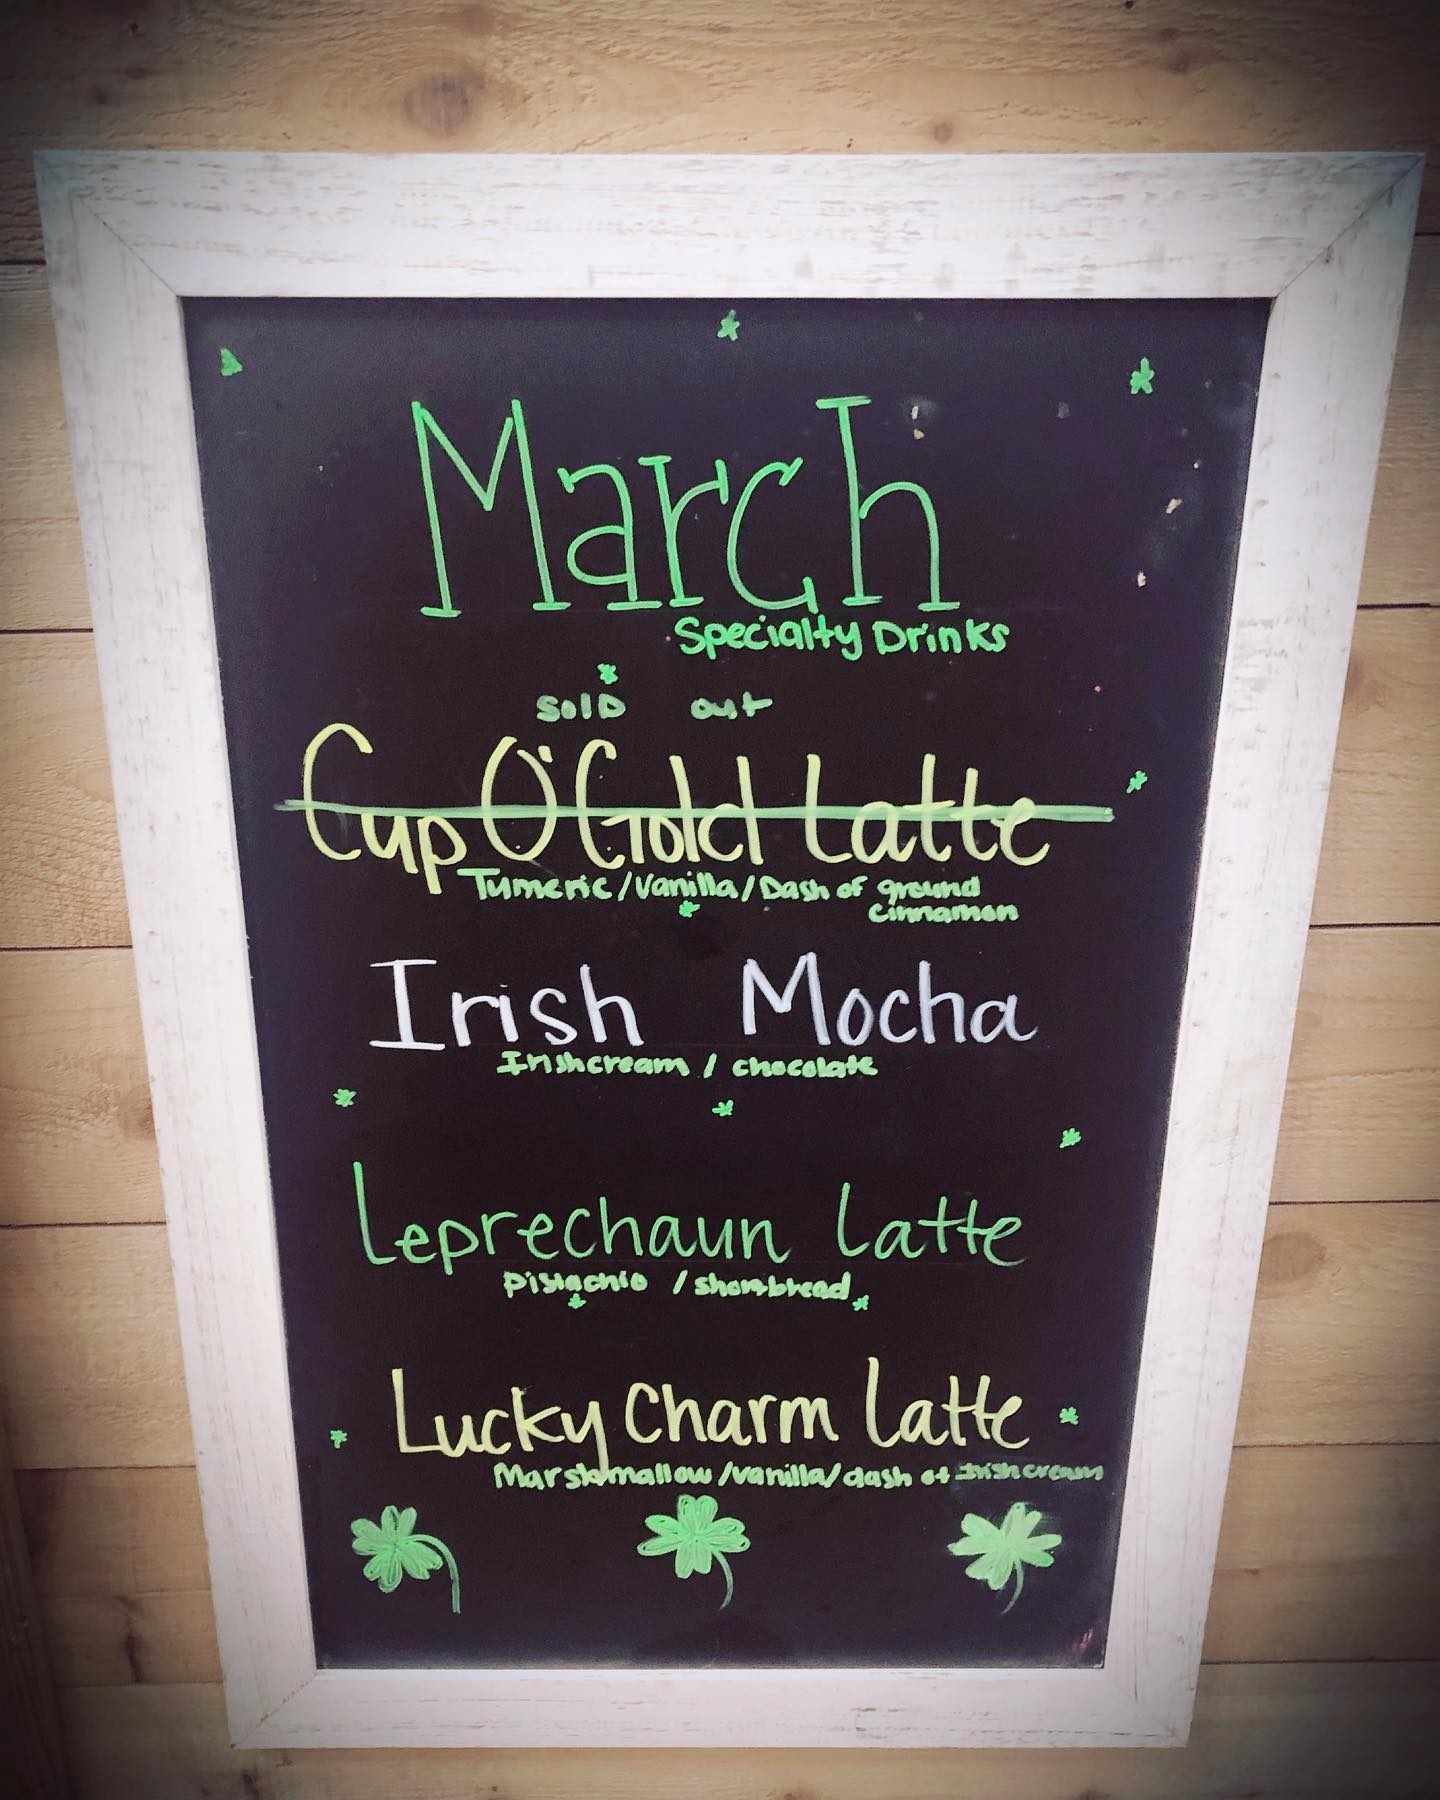 March
Specialty Drinks
Sold out
Cup O'Gold Latte
Tumeric/Vanilla/Dash of ground
cinnamon
Irish Mocha
Irishcream / chocolate
Leprechaun Latte
Pistachio / shortbread
Lucky Charm Latte
Marshmallow/vanilla/dash of Irish cream